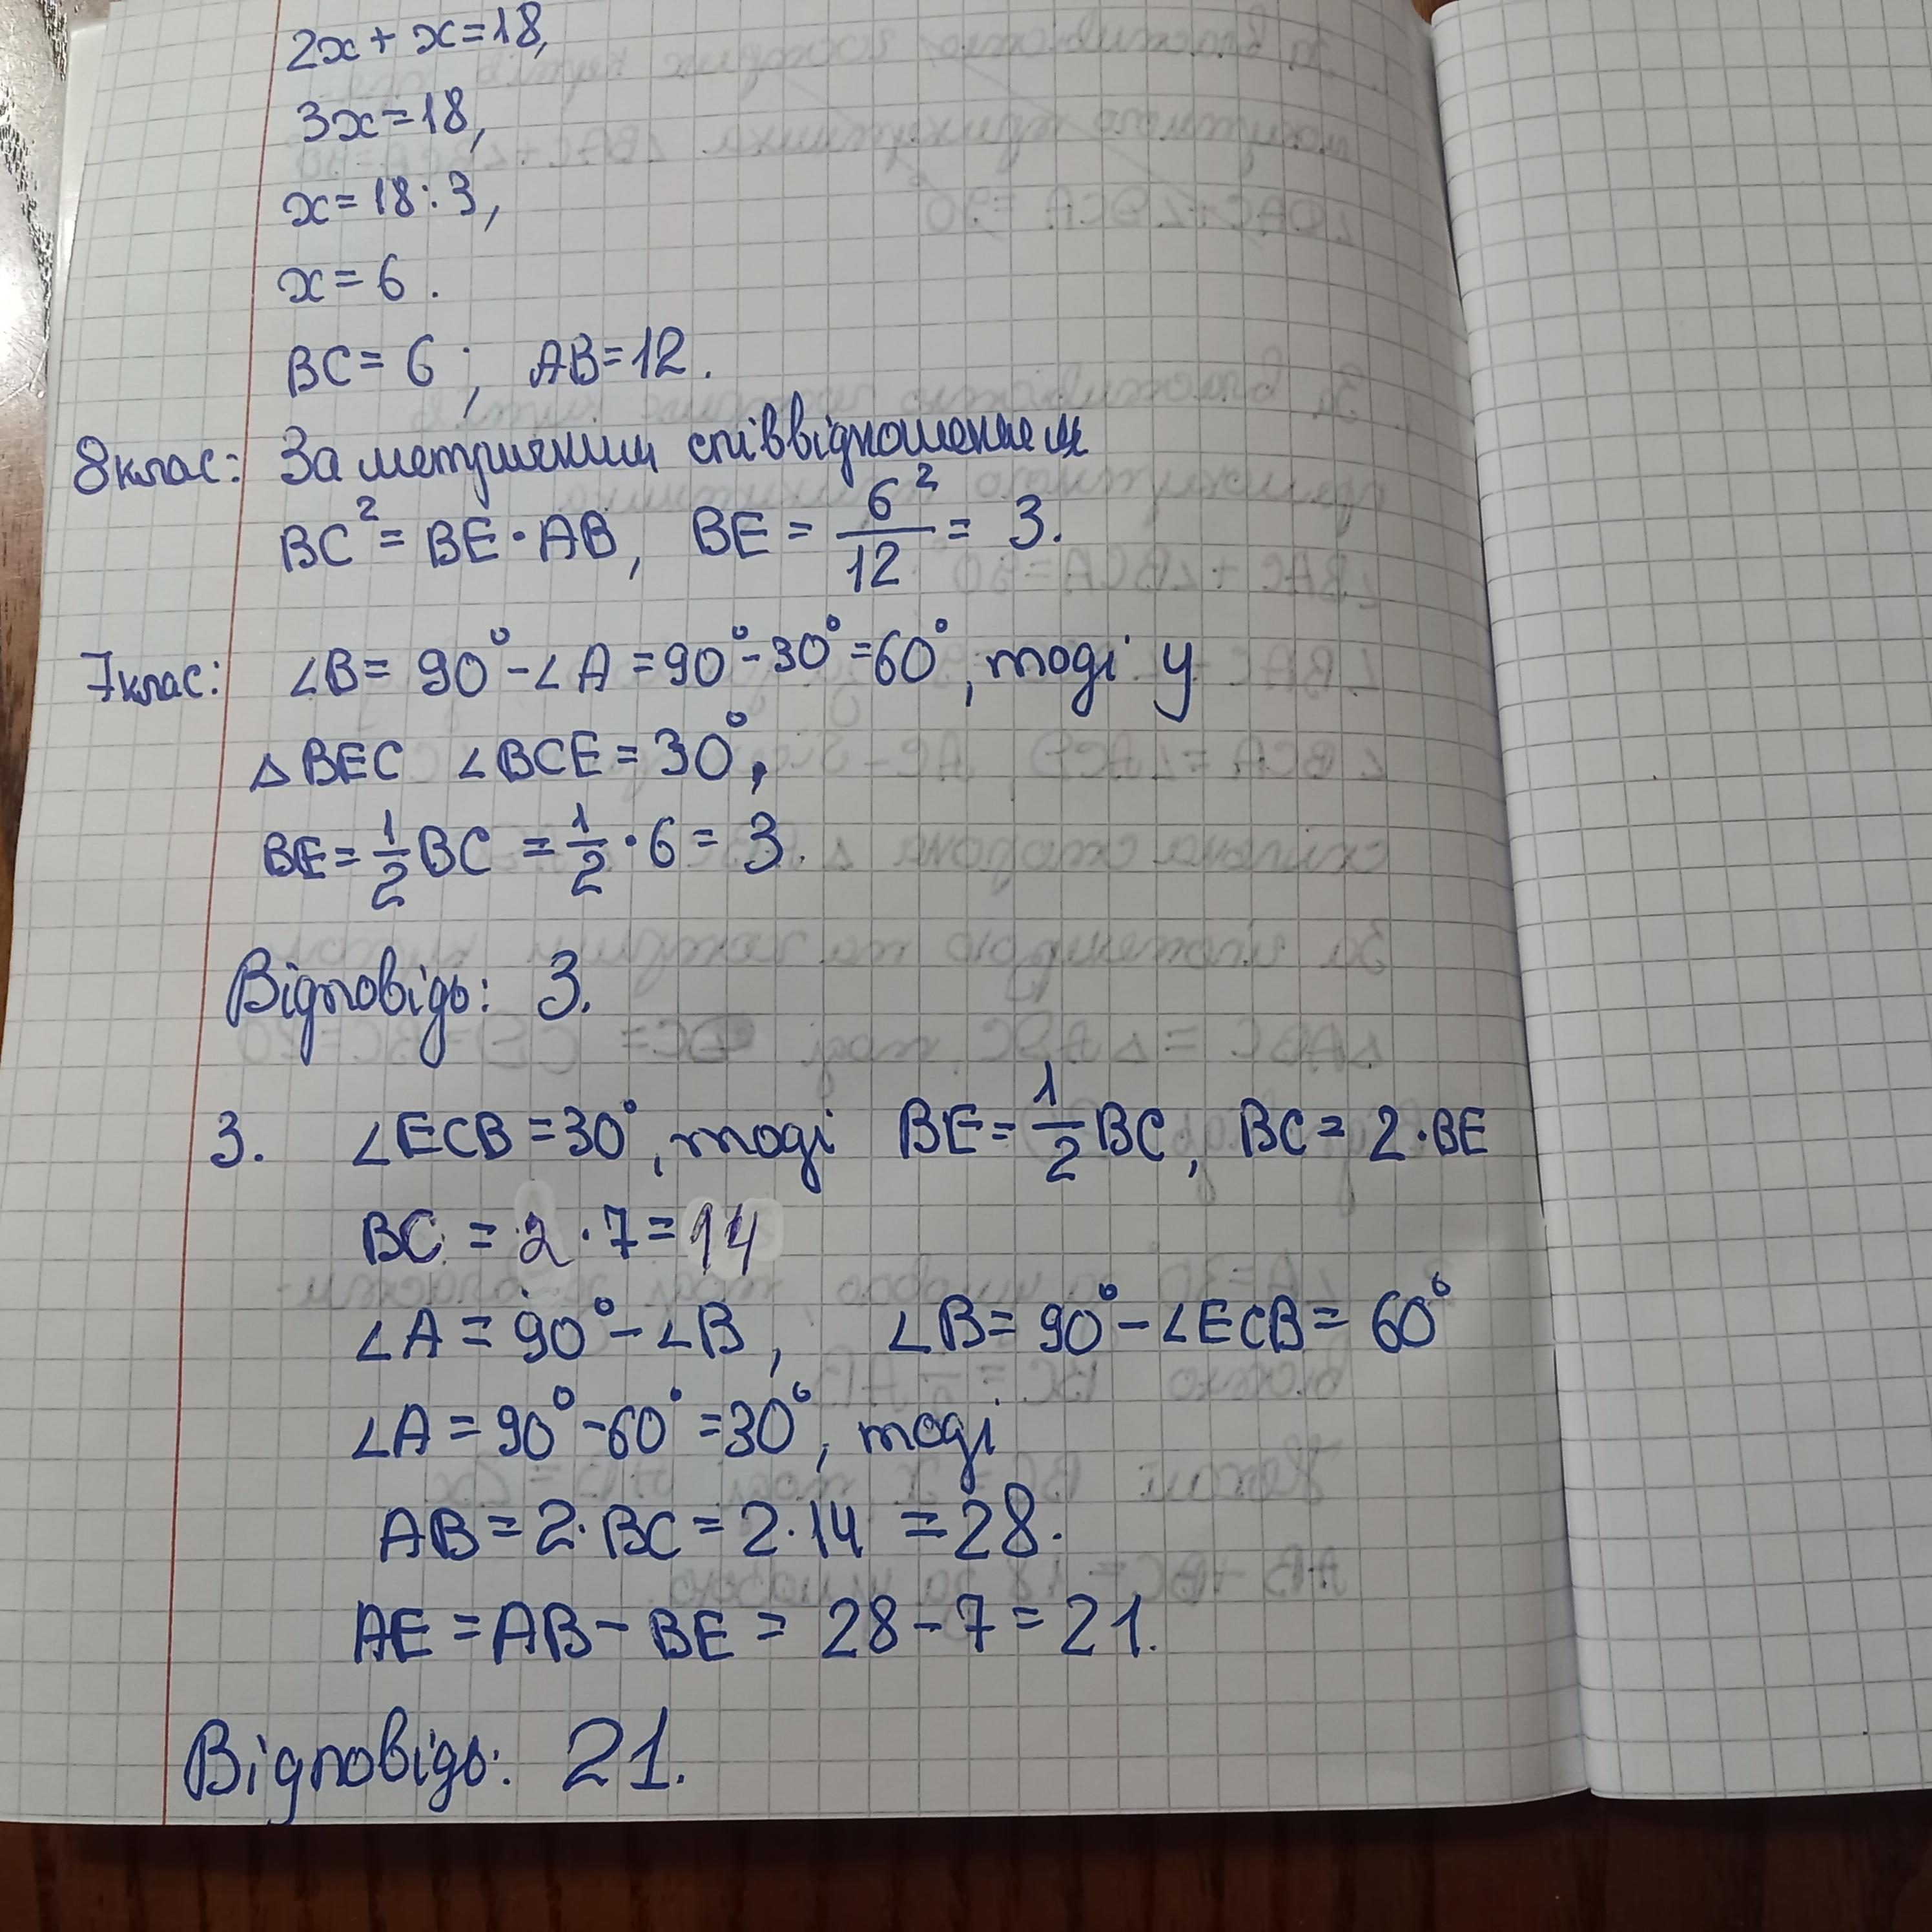 2x + x = 18,
3x = 18,
x = 18 : 3,
x = 6.
BC = 6 ; AB = 12.
8 клас: За метричним співвідношенням
BC² = BE · AB, BE = 6²/12 = 3.
7 клас: ∠B = 90° - ∠A = 90° - 30° = 60°, тоді у
△BEC ∠BCE = 30°,
BE = 1/2 BC = 1/2 · 6 = 3.
Відповідь: 3.
3. ∠ECB = 30°, тоді BE = 1/2 BC, BC = 2 · BE
BC = 2 · 7 = 14
∠A = 90° - ∠B, ∠B = 90° - ∠ECB = 60°
∠A = 90° - 60° = 30°, тоді
AB = 2 · BC = 2 · 14 = 28.
AE = AB - BE = 28 - 7 = 21.
Відповідь: 21.